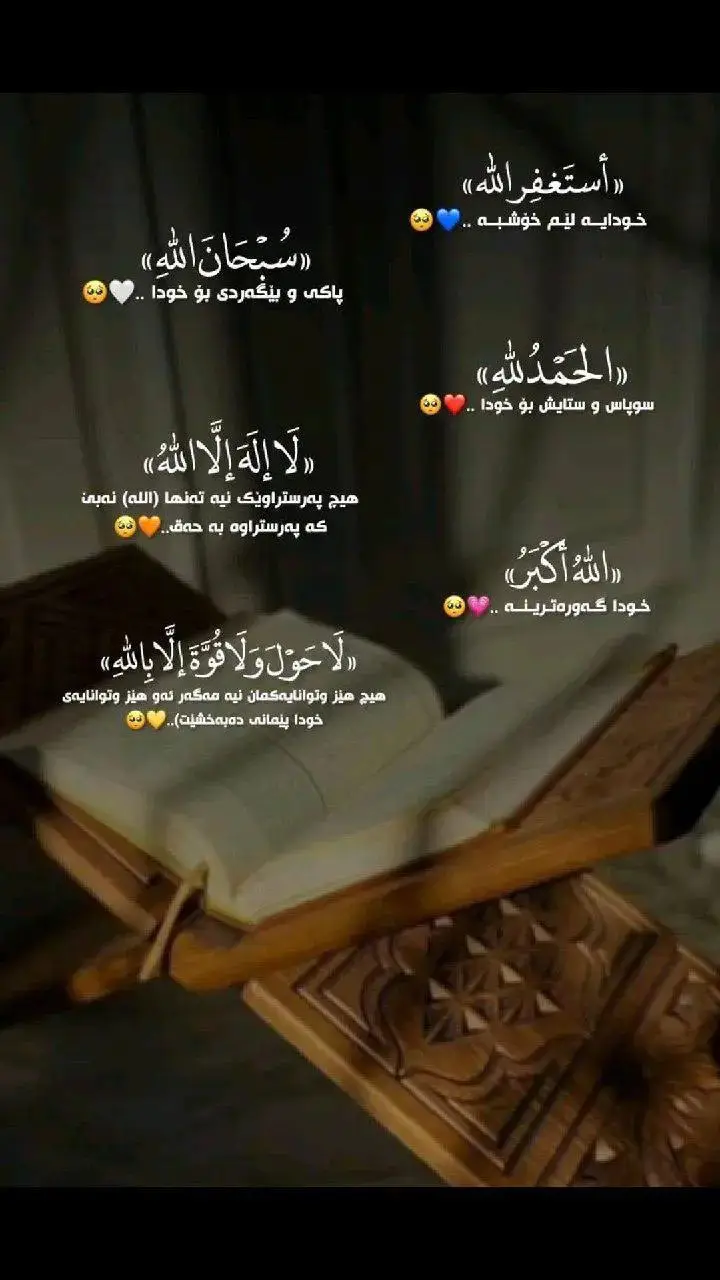 «أستَغفِرالله»
خـودایــه لێـم خۆشـبــه ..💙🥺
«سُبْحَانَ اللهِ»
پاکی و بێگەردی بۆ خودا ..🤍🥺
«الحَمْدُ للهِ»
سوپاس و ستایش بۆ خودا ..❤️🥺
«لَا إِلَهَ إِلَّا اللهُ»
هیچ پەرستراوێک نیە تەنها (الله) نەبێ
کە پەرستراوە بە حەق..🧡🥺
«اللهُ أَكْبَرُ»
خـودا گـەورەتـریـنــە ..💗🥺
«لَا حَوْلَ وَلَا قُوَّةَ إِلَّا بِاللهِ»
هیچ هێز وتوانایەکمان نیە مەگەر ئەو هێز وتوانایەی
خودا پێمانی دەبەخشێت)..💛🥺